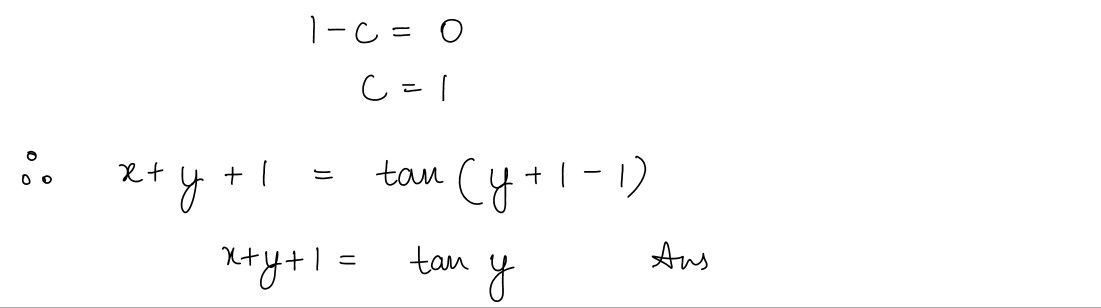 1 - c = 0
c = 1
∴ x + y + 1 = tan (y + 1 - 1)
x + y + 1 = tan y Ans